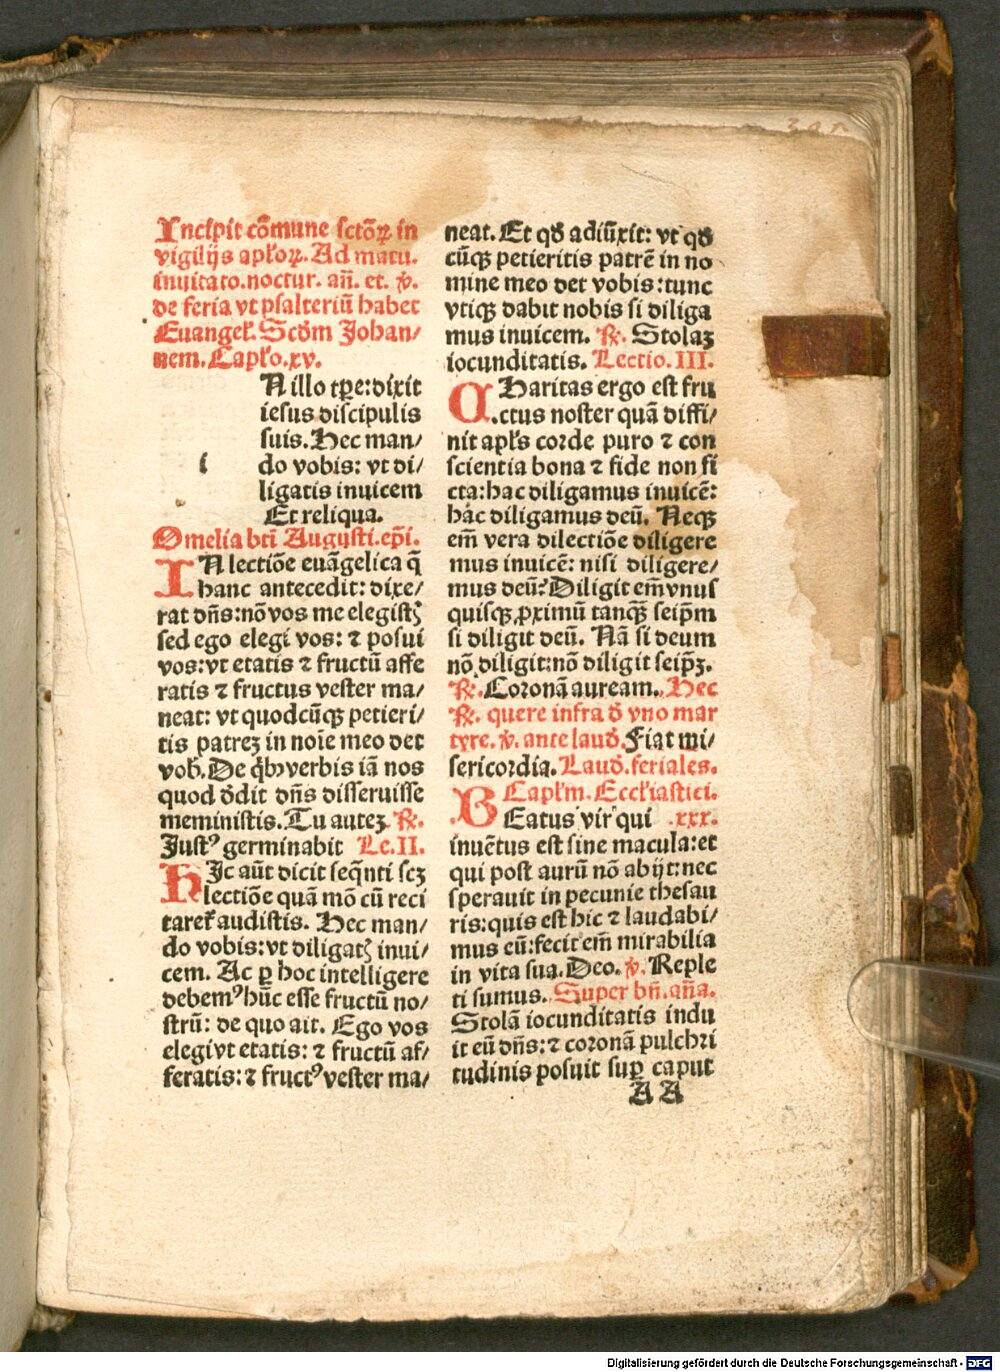 Incipit cōmune sctōꝝ in
vigilijs apl'oꝝ. Ad matu.
inuitato. noctur. añ. et. ꝟ.
de feria vt psalteriū habet
Euangel'. Scd'm Johan/
nem. Capl'o. xv.
i
N illo tp̄e: dixit
iesus discipulis
suis. Hec man/
do vobis: vt di/
ligatis inuicem
Et reliqua.
Omelia bt̄i Augusti. ep̄i.
IN lectiōe euāgelica q̄
hanc antecedit: dixe/
rat dn̄s: nō vos me elegistꝭ
sed ego elegi vos: ⁊ posui
vos: vt etatis ⁊ fructū affe
ratis ⁊ fructus vester ma/
neat: vt quodcūqꝫ petieri/
tis patreꝫ in noīe meo det
vob̄. De qͥbꝰ verbis iā nos
quod d̄dit dn̄s disseruisse
meministis. Tu auteꝫ. ℟.
Justꝰ germinabit Le. II.
HJc aūt dicit seq̄nti scꝫ
lectiōe quā mō cū reci
taret' audistis. Hec man/
do vobis: vt diligatꝭ inui/
cem. Ac ꝑ hoc intelligere
debemꝰ hūc esse fructū no/
strū: de quo ait. Ego vos
elegi vt etatis: ⁊ fructū af/
feratis: ⁊ fructꝰ vester ma/
neat. Et qd̄ adiūxit: vt qd̄
cūqꝫ petieritis patrē in no
mine meo det vobis: tunc
vtiqꝫ dabit nobis si diliga
mus inuicem. ℟. Stolaꝫ
iocunditatis. Lectio. III.
CHaritas ergo est fru
ctus noster quā diffi/
nit apl's corde puro ⁊ con
scientia bona ⁊ fide non fi
cta: hac diligamus inuicē:
hac diligamus deū. Neqꝫ
em̄ vera dilectiōe diligere
mus inuicē: nisi diligere/
mus deū? Diligit em̄ vnus
quisqꝫ ꝓximū tanqꝫ̄ seip̄m
si diligit deū. Nā si deum
nō diligit: nō diligit seip̄ꝫ.
℟. Coronā auream. Hec
℟. quere infra d̄ vno mar
tyre. ꝟ. ante laud̄. Fiat mi/
sericordia. Laud̄. feriales.
Capl'm. Eccl'iastici.
BEatus vir qui .xxx.
inuētus est sine macula: et
qui post aurū nō abijt: nec
sperauit in pecunie thesau
ris: quis est hic ⁊ laudabi/
mus eū: fecit em̄ mirabilia
in vita sua. Deo. ꝟ. Reple
ti sumus. Super bn̄. an̄a.
Stolā iocunditatis indu
it eū dn̄s: ⁊ coronā pulchri
tudinis posuit suꝑ caput
AA
Digitalisierung gefördert durch die Deutsche Forschungsgemeinschaft - DFG